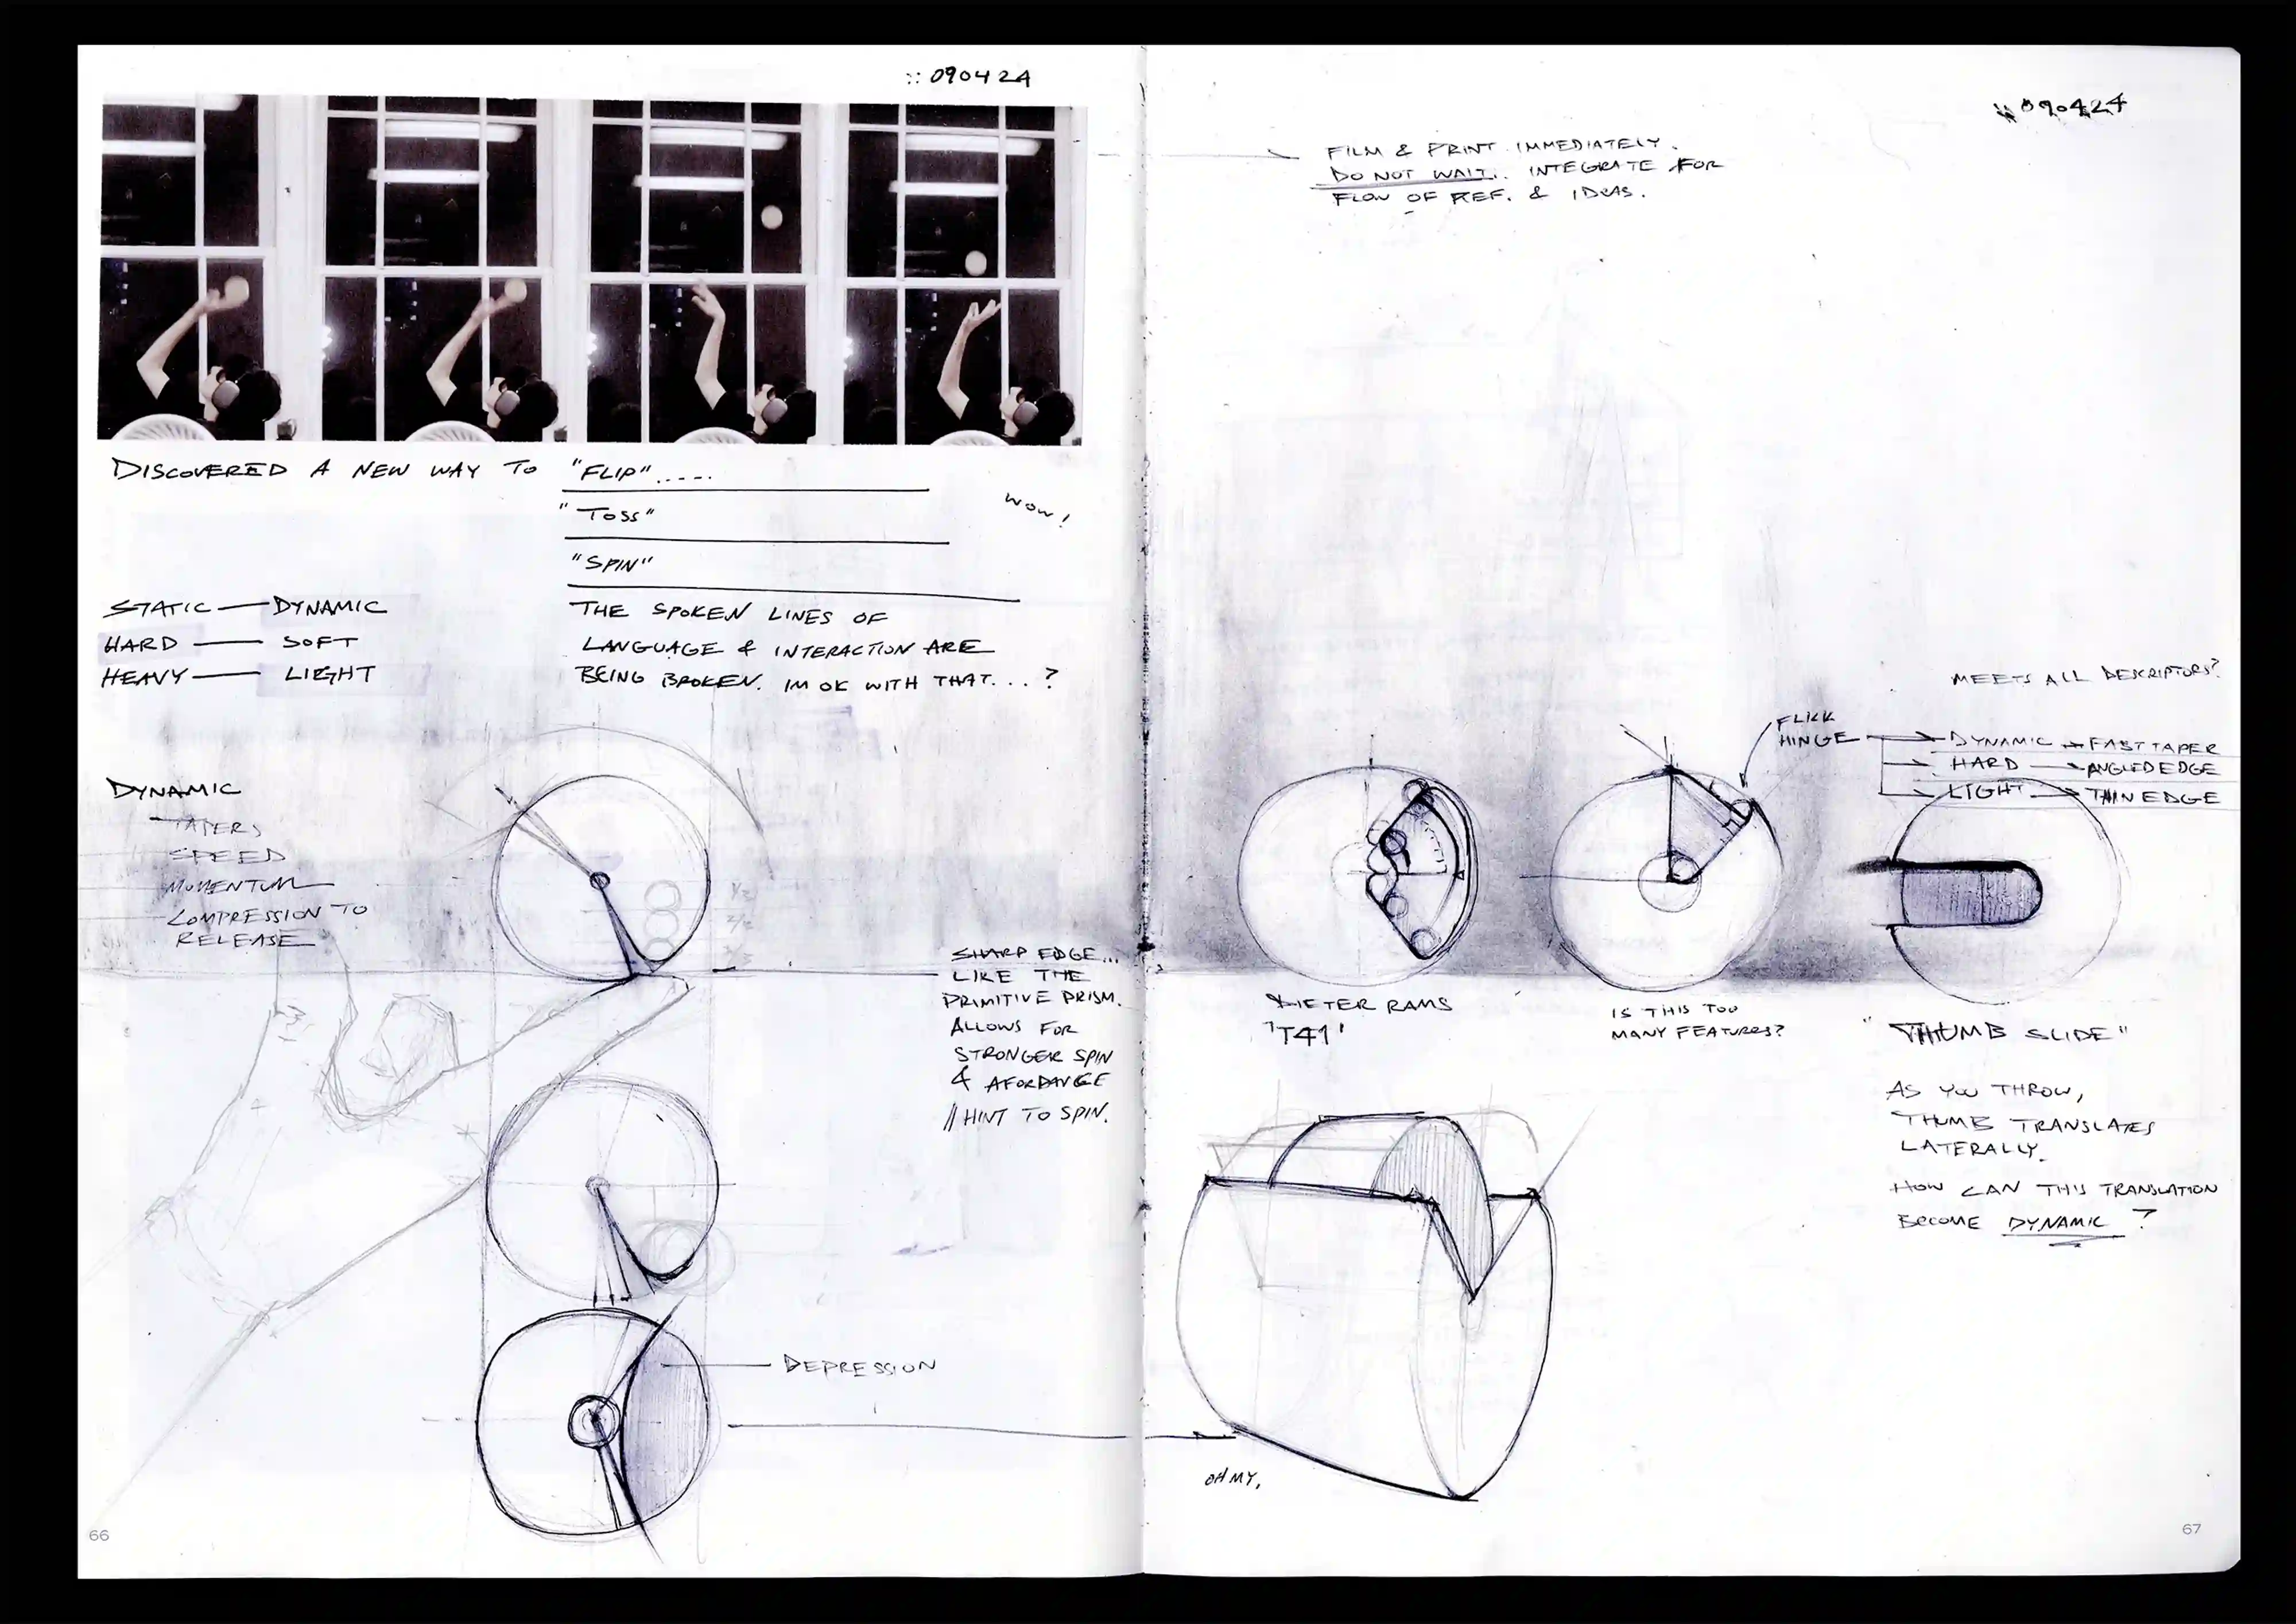 :: 090424
DISCOVERED A NEW WAY TO "FLIP".....
"TOSS"
"SPIN"
WOW!
STATIC — DYNAMIC
HARD — SOFT
HEAVY — LIGHT
THE SPOKEN LINES OF
LANGUAGE & INTERACTION ARE
BEING BROKEN. IM OK WITH THAT... ?
DYNAMIC
TAPERS
SPEED
MOMENTUM
COMPRESSION TO
RELEASE
1/3
2/3
3/3
SHARP EDGE...
LIKE THE
PRIMITIVE PRISM.
ALLOWS FOR
STRONGER SPIN
& AFORDANCE
// HINT TO SPIN.
DEPRESSION
66
:: 090424
FILM & PRINT IMMEDIATELY.
DO NOT WAIT. INTEGRATE FOR
FLOW OF REF. & IDEAS.
MEETS ALL DESCRIPTORS?
FLICK
HINGE
DYNAMIC → FAST TAPER
HARD → ANGLED EDGE
LIGHT → THIN EDGE
DIETER RAMS
'T41'
IS THIS TOO
MANY FEATURES?
"THUMB SLIDE"
AS YOU THROW,
THUMB TRANSLATES
LATERALLY.
HOW CAN THIS TRANSLATION
BECOME DYNAMIC ?
OH MY,
67